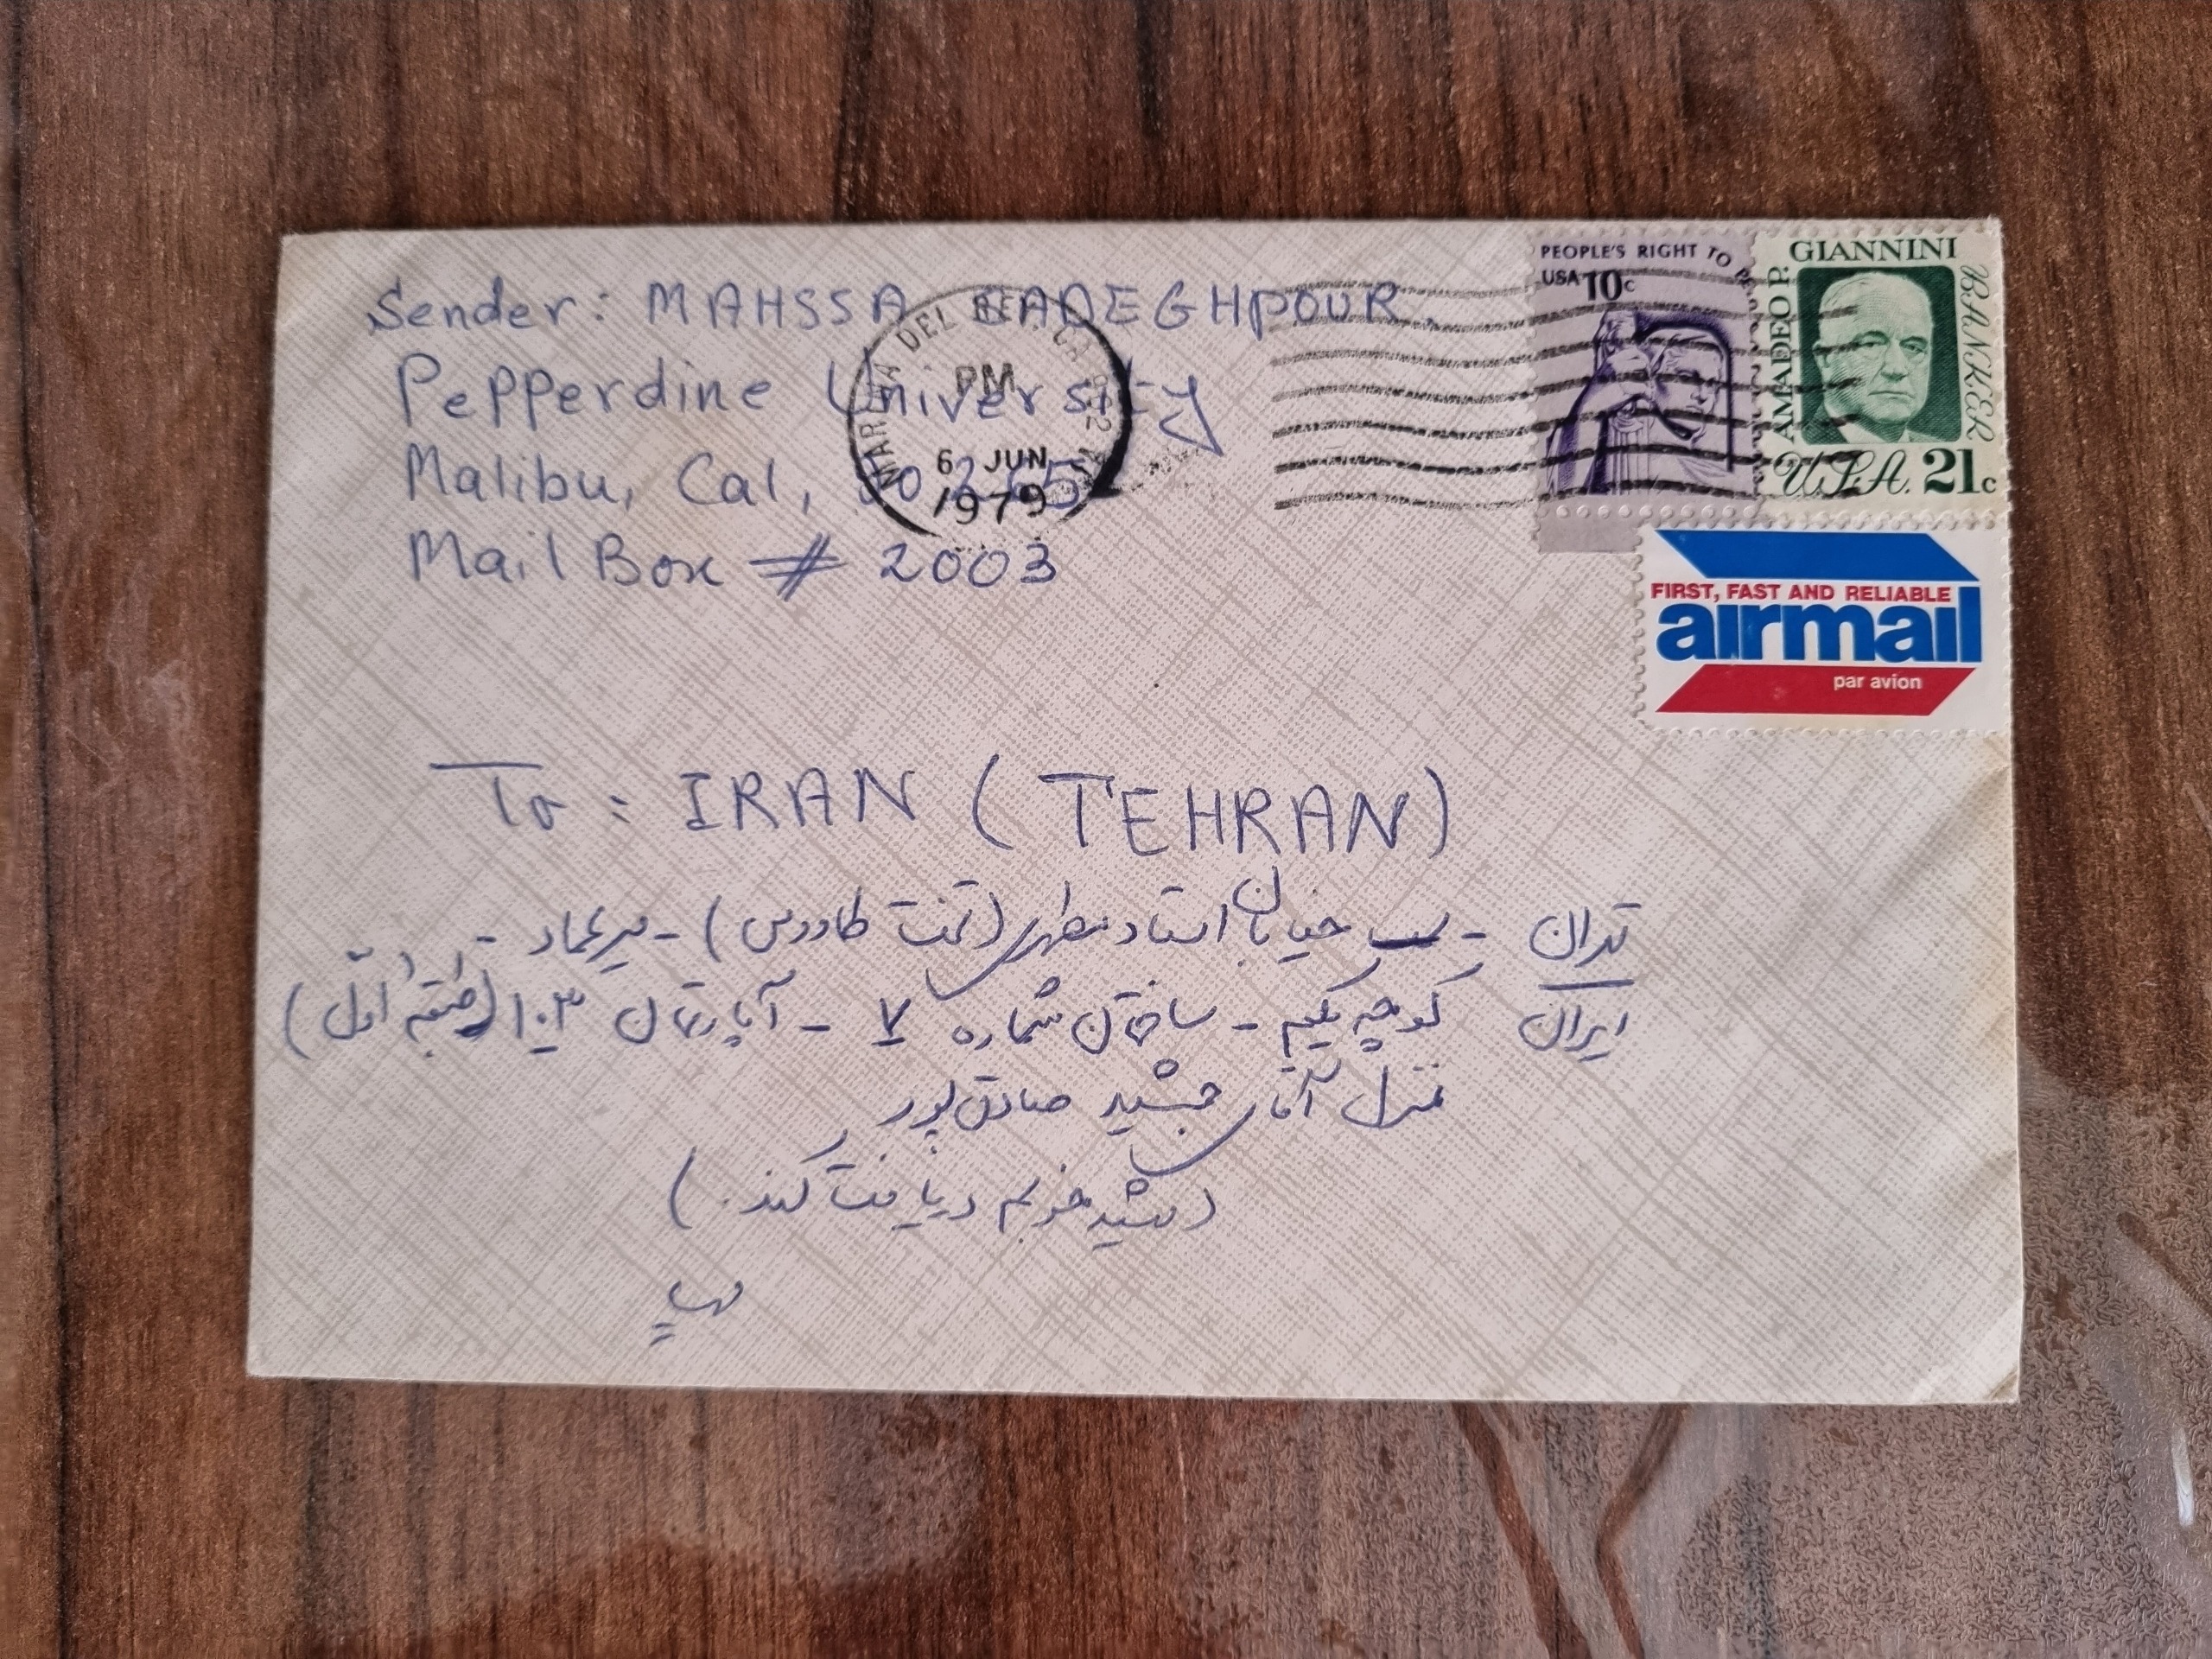 Sender: MAHSSA SADEGHPOUR.
Pepperdine University
Malibu, Cal, 90265
Mail Box # 2003
MARINA DEL REY, CA
PM
6 JUN
1979
PEOPLE'S RIGHT TO
USA 10c
AMADEO P. GIANNINI
BANKER
U.S.A. 21c
FIRST, FAST AND RELIABLE
airmail
par avion
To: IRAN (TEHRAN)
تهران - خیابان استاد مطهری (تخت طاووس) - میرعماد -
ایران کوچه یکم - ساختمان شماره ۷ - آپارتمان ۱۰۳ (طبقه اول)
منزل آقای جمشید صادق‌پور
(مهشید خودم دریافت کند.)